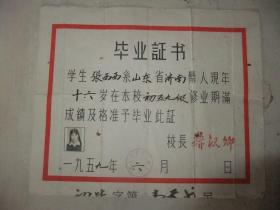 毕业証书
学生張西西系山东省济南縣人現年
十六岁在本校初五九级修业期滿
成績及格准予毕业此証
校長
一九五九年六月 日
字第 号